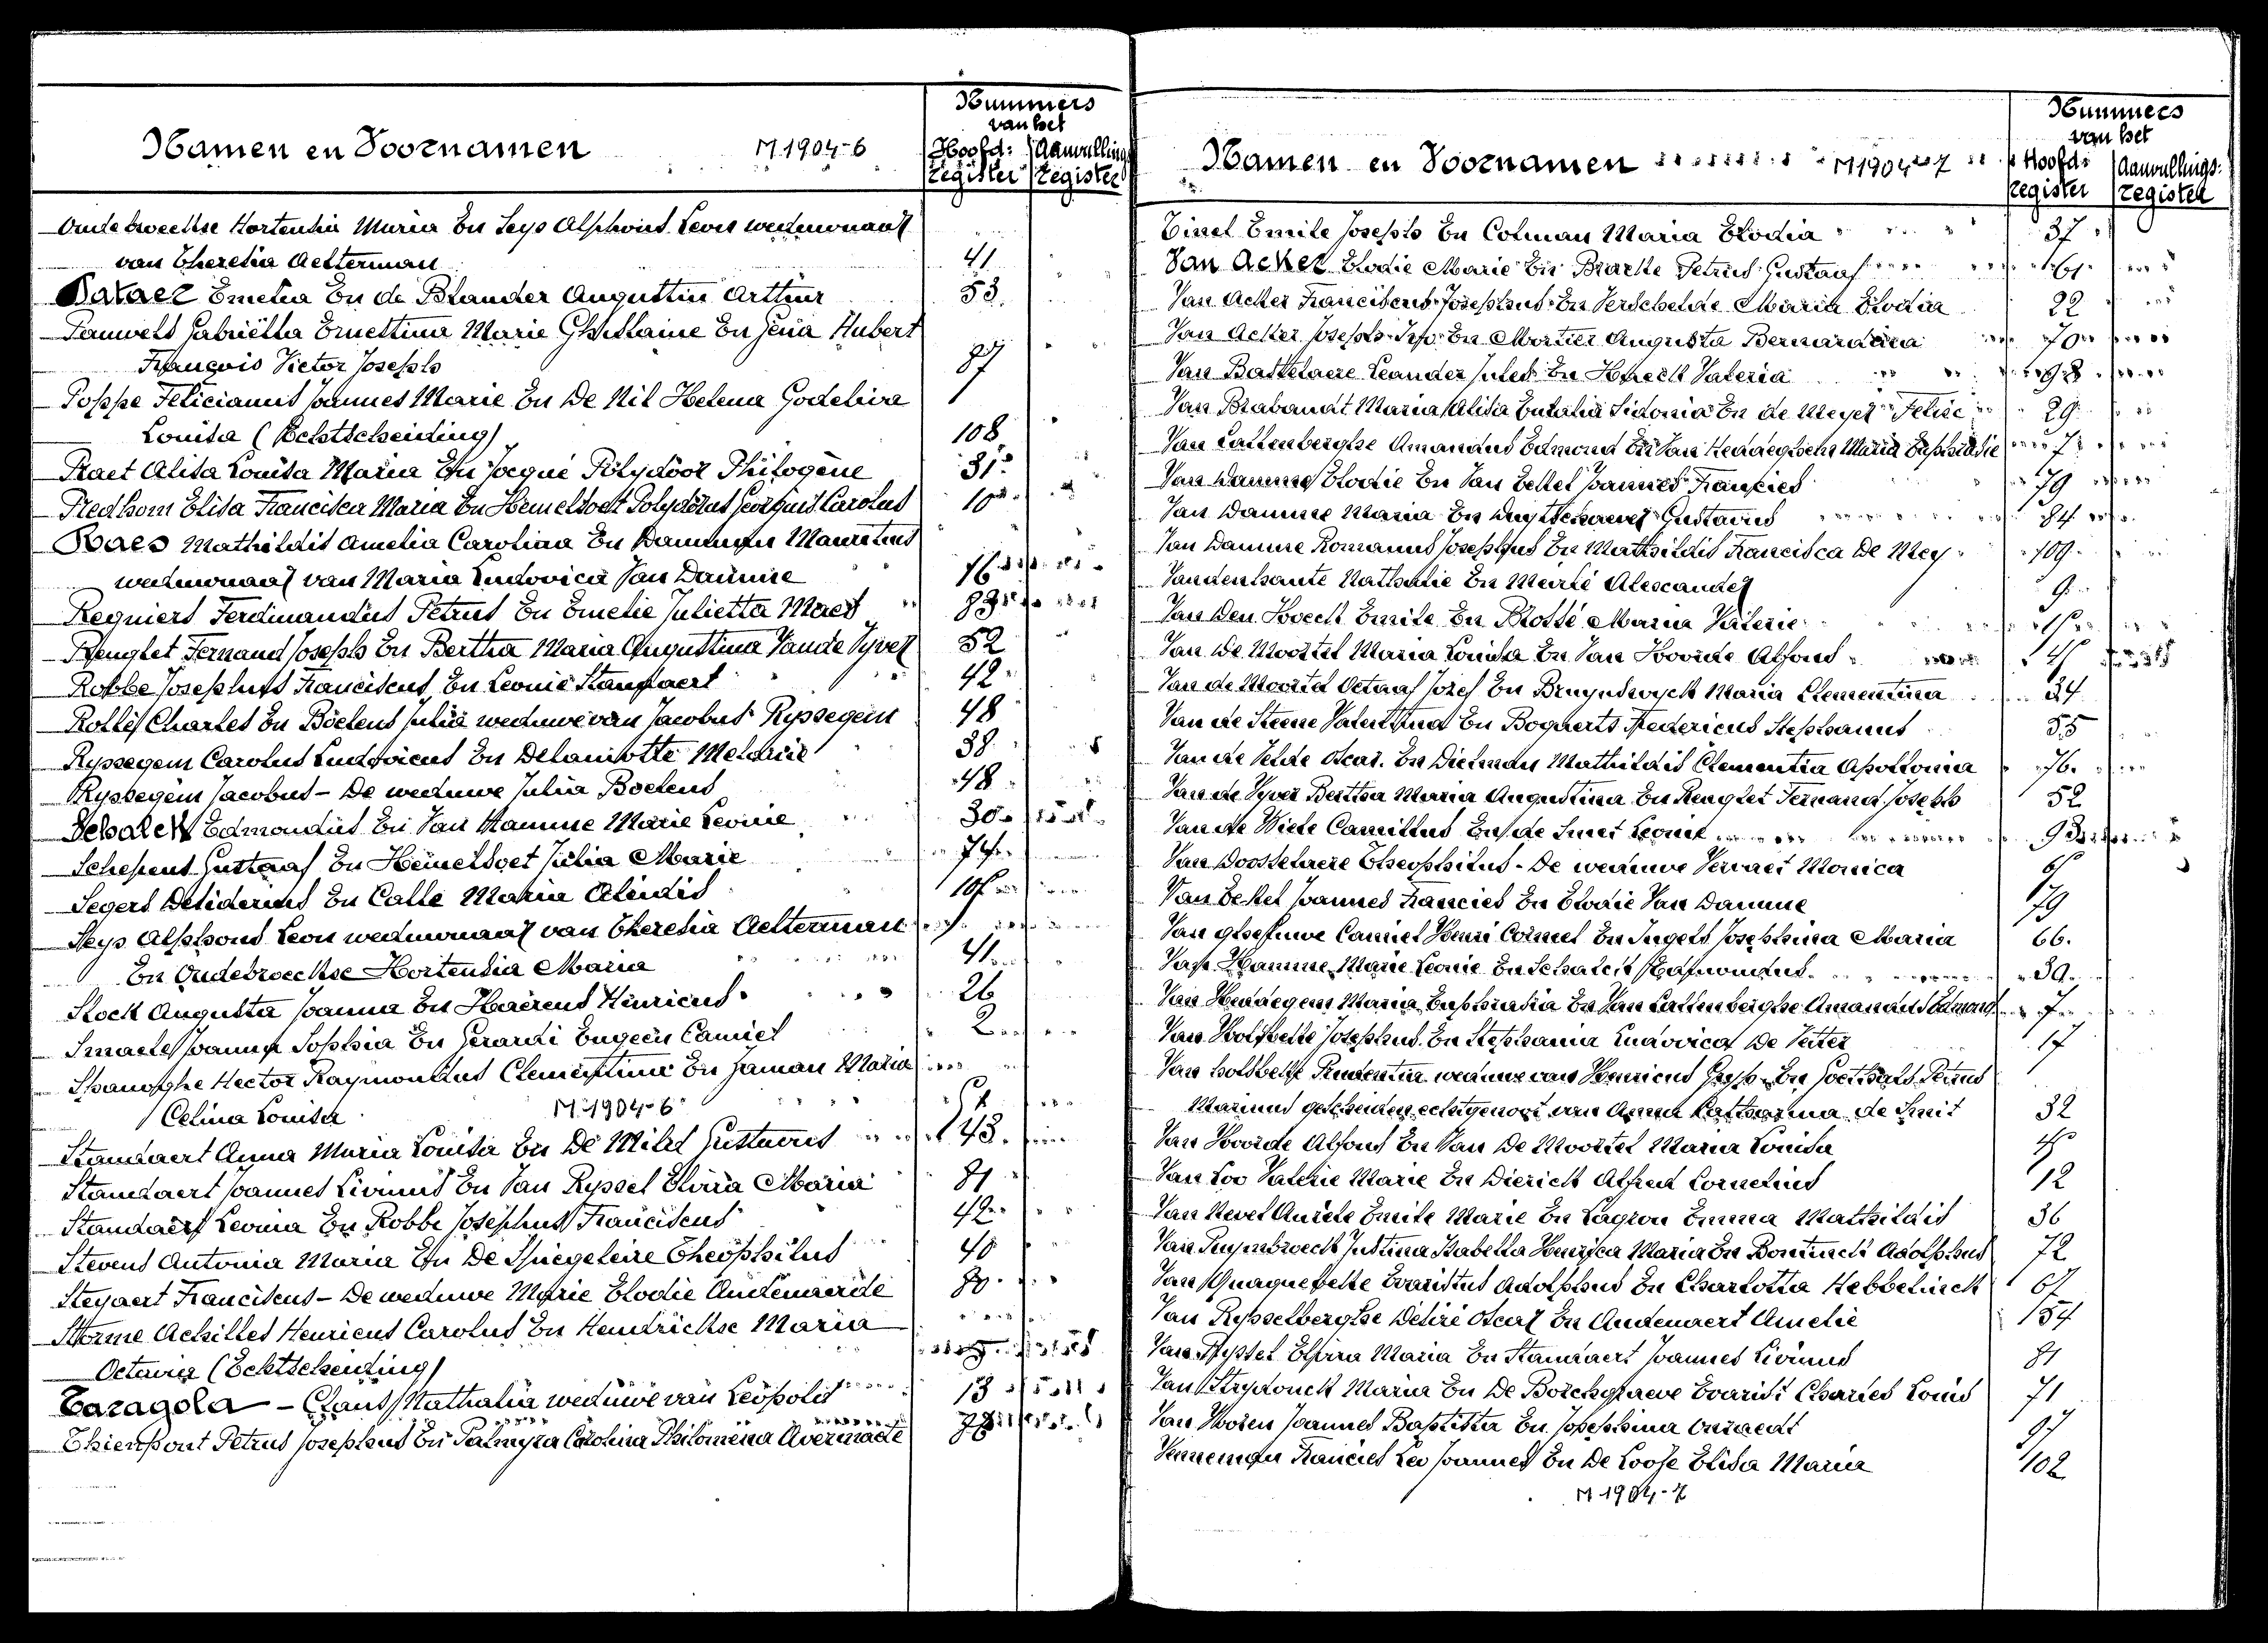 Nummers
van het
Namen en Voornamen M 1904-6 Hoofd: Aanvullings
register register
Oudebroeckse Hortentia Maria En Seys Alphons Leon weduwnaar
van Theresia Aelterman 41
Pataer Emelia En de Blander Augustin Arthur 53
Pauwels Gabriëlla Ernestina Marie Ghislaine En Jena Hubert
François Victor Joseph 87
Poppe Felicianus Joannes Marie En De Nil Helena Godelive
Louisa (Echtscheiding) 108
Praet Alisa Louisa Maria En Jacqué Polydoor Philogène 31
Predhom Elisa Francisca Maria En Hemelsoet Polydorus Georgius Carolus
Raes Mathildis Amelia Carolina En Mauritius
weduwnaar van Maria Ludovica Van Damme 16
Regniers Ferdinandus Petrus En Emelie Julietta Maes 83
Renglet Fernand Joseph En Bertha Maria Augustina Vande Vyver 52
Robbe Josephus Franciscus En Leonie Standaert 42
Rollé Charles En Boelens Julia weduwe van Jacobus Ryssegem 48
Ryssegem Carolus Ludovicus En Delanotte Melanie 38
Ryssegem Jacobus - De weduwe Julia Boelens 48
Schalck Edmondus En Van Hamme Marie Leonie 30
Schepens Gustaaf En Hemelsoet Julia Marie
Segers Desiderius En Calle Maria Alindis
Seys Alphons Leon weduwnaar van Theresia Aelterman
En Oudebroeckse Hortensia Maria 41
Slock Augusta Joanna En Haerens Henricus 26
Joanna Sophia En Gerardi Eugeen Camiel 2
Spanoghe Hector Raymondus Clementine En Jaman Maria
Celina Louisa M 1904-6
Standaert Anna Maria Louisa En De Milet Gustavus 43
Standaert Joannes Livinus En Van Ryssel Elvira Maria 81
Standaert Leonia En Robbe Josephus Franciscus 42
Stevens Antonia Maria En De Spiegeleire Theophilus 40
Steyaert Franciscus - De weduwe Marie Elodie Audenaerde
Storme Achilles Henricus Carolus En Hendrickse Maria
Octavia (Echtscheiding)
Taragola - Claus Nathalia weduwe van Leopold 13
Thienpont Petrus Josephus En Palmyra Carolina Philomena Avermaete
Nummers
van het
Namen en Voornamen M 1904-7 Hoofd: Aanvullings:
register register
Tissel Emile Joseph En Colman Maria Elodia 37
Van Acker Elodie Marie En Bracke Petrus Gustaaf 61
Van Acker Franciscus Josephus En Verschelde Maria Elodia 22
Van Acker Joseph En Mortier Augusta Bernardina 70
Van Bastelaere Leander Jules En Valeria
Van Brabandt Maria Alisia Eulalia Sidonia En de Meyer Felix 29
Van Cattenberghe Amandus Edmond En Van Heddeghem Maria Euphrasie 7
Van Damme Elodie En Van Eeckel Joannes Francies 79
Van Damme Maria En Gustavus 84
Van Damme Romanus Josephus En Mathildis Francisca De Mey 109
Vandenhaute Nathalie En Alexander 9
Van Den Hoeck Emile En Maria Valerie
Van De Moortel Maria Louisa En Van Hoorde Alfons
Van de Moortel Octaaf Jozef En Bruyndonck Maria Clementina 24
Van de Steene Valentina En Bogaerts Fredericus Stephanus 55
Van de Velde Oscar En Dieleman Mathildis Clementia Apollonia 76
Van de Vyver Bertha Maria Augustina En Renglet Fernand Joseph 52
Van de Wiele Camillus En de Smet Leonie 93
Van Doosselaere Theophilus - De weduwe Vervaet Monica
Van Eeckel Joannes Francies En Elodie Van Damme 79
Van Camiel Henri Cornel En Ingels Josephina Maria 66.
Van Hamme Marie Leonie En Schalck Edmondus 30
Van Heddegem Maria Euphrasia En Van Cattenberghe Amandus Edmond 7
Van Holsbeke Josephus En Stephania Ludovica De Vetter 17
Van Holsbeke Prudentia weduwe van Henricus En Goethals Petrus
Marinus gescheiden echtgenoot van Anna Catharina de Smet 32
Van Hoorde Alfons En Van De Moortel Maria Louisa
Van Loo Valerie Marie En Dierick Alfred Cornelius 12
Van Nevel Aurèle Emile Marie En Lagrou Emma Mathildis 36
Van Puymbroeck Justina Isabella Henrica Maria En Bontinck Adolphus 72
Van Quaquebeke Evaristus Adolphus En Charlotta Hebbelinck 67
Van Rysselberghe Désiré Oscar En Audenaert Amelie
Van Ryssel Elvira Maria En Standaert Joannes Livinus 81
Van Strydonck Maria En De Borchgraeve Evarist Charles Louis 71
Van Joannes Baptista En Josephina
Venneman Francies Leo Joannes En De Loose Elisa Maria 102
M 1904-7